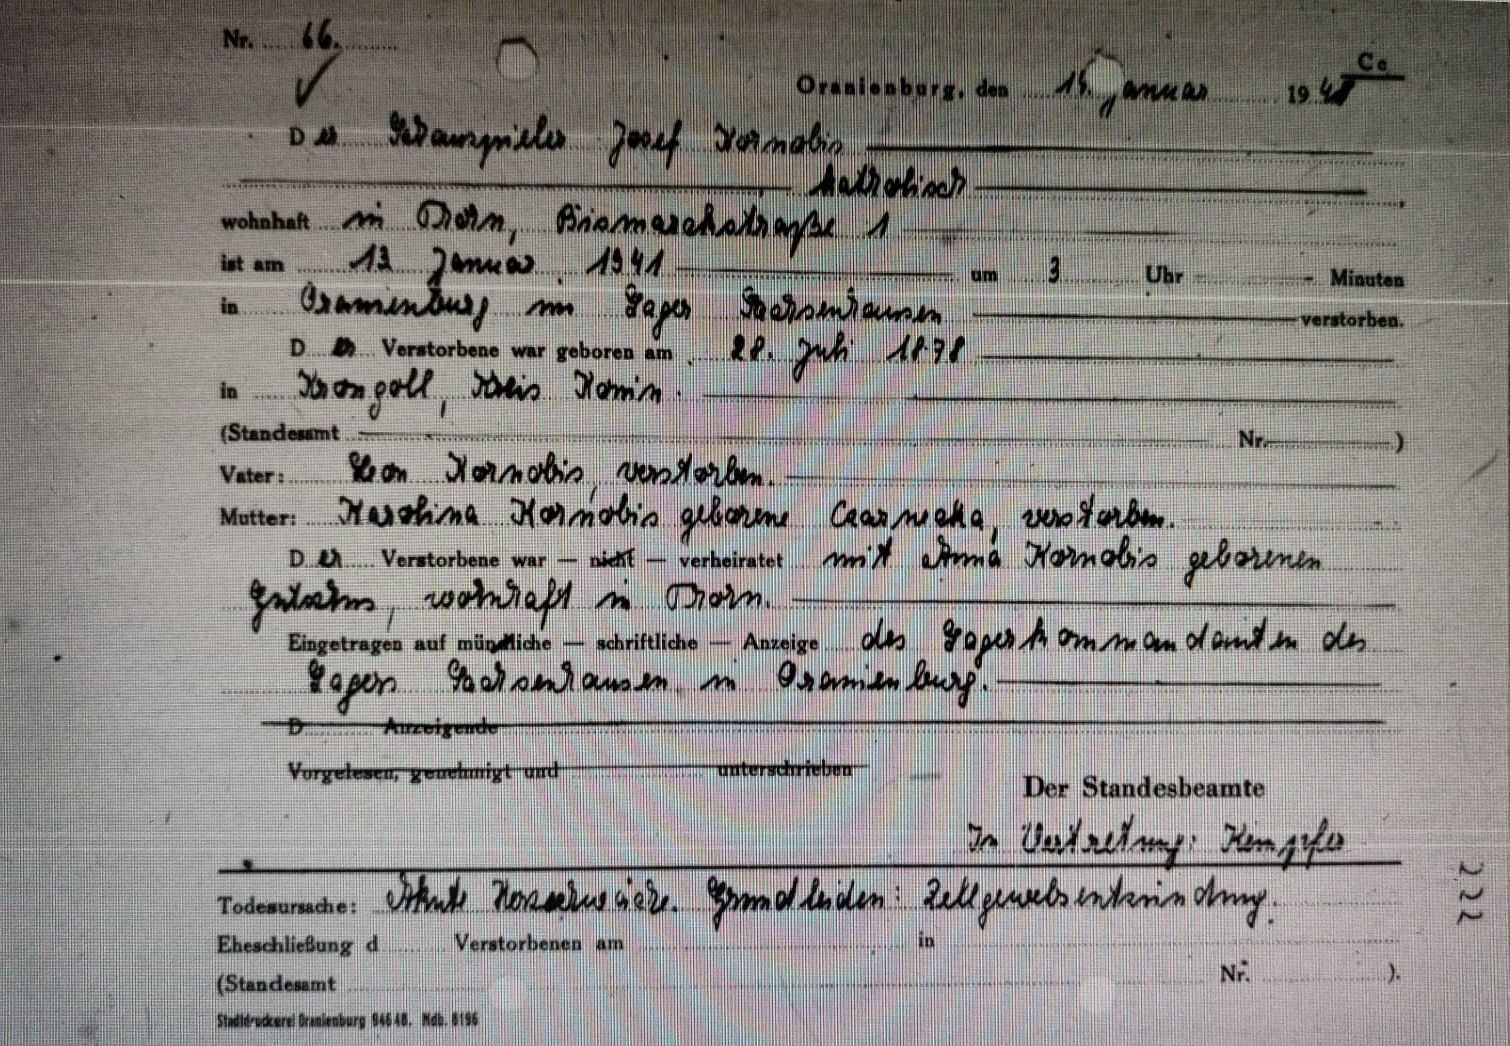 Nr. 66.
Cc
Oranienburg, den 15. Januar 1941
Der Schauspieler Josef Kornobis
katholisch
wohnhaft in Thorn, Bismarckstraße 1
ist am 13 Januar 1941 um 3 Uhr - Minuten
in Oranienburg im Lager Sachsenhausen verstorben.
Der Verstorbene war geboren am 28. Juli 1878
in Kreis Konin.
(Standesamt Nr. )
Vater: Leon Kornobis, verstorben.
Mutter: Karolina Kornobis geborene verstorben.
Der Verstorbene war — nicht — verheiratet mit Anna Kornobis geborenen
wohnhaft in Thorn.
Eingetragen auf mündliche — schriftliche — Anzeige des Lagerkommandanten des
Lagers Sachsenhausen in Oranienburg.
D Anzeigende
Vorgelesen, genehmigt und unterschrieben
Der Standesbeamte
In Vertretung: Kempfer
Todesursache: Akute Grundleiden: Zellgewebsentzündung.
Eheschließung d Verstorbenen am in
(Standesamt Nr. ).
Stadtdruckerei Oranienburg 946 40. Ndb. 0196
222